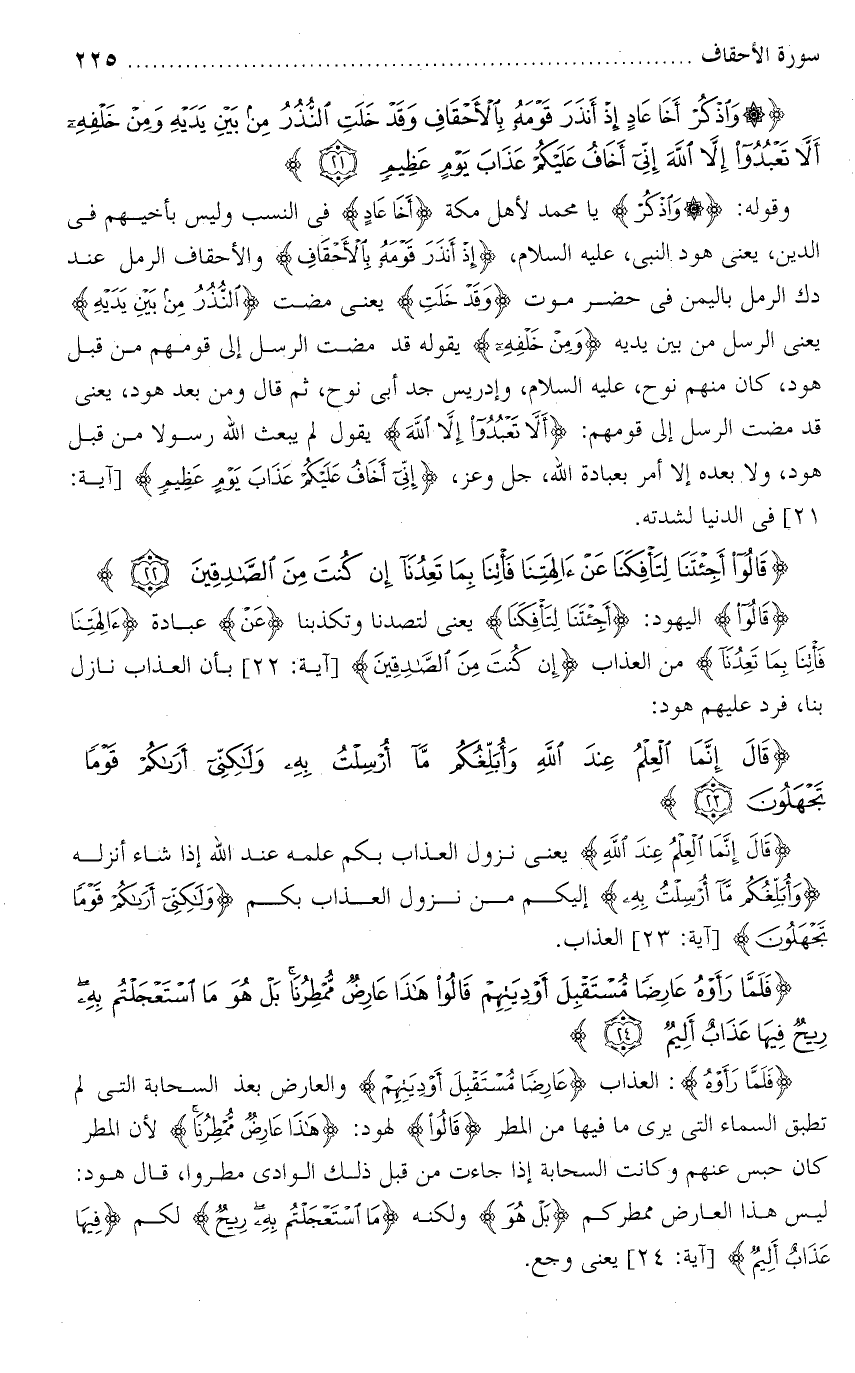 سورة الأحقاف ........................................................................ ٢٢٥
﴿۞ وَٱذۡكُرۡ أَخَا عَادٍ إِذۡ أَنذَرَ قَوۡمَهُۥ بِٱلۡأَحۡقَافِ وَقَدۡ خَلَتِ ٱلنُّذُرُ مِنۢ بَيۡنِ يَدَيۡهِ وَمِنۡ خَلۡفِهِۦٓ
أَلَّا تَعۡبُدُوٓاْ إِلَّا ٱللَّهَ إِنِّيٓ أَخَافُ عَلَيۡكُمۡ عَذَابَ يَوۡمٍ عَظِيمٖ ٢١ ﴾
وقوله: ﴿۞ وَٱذۡكُرۡ ﴾ يا محمد لأهل مكة ﴿أَخَا عَادٍ﴾ فى النسب وليس بأخيهم فى
الدين، يعنى هود النبى، عليه السلام، ﴿إِذۡ أَنذَرَ قَوۡمَهُۥ بِٱلۡأَحۡقَافِ﴾ والأحقاف الرمل عند
دك الرمل باليمن فى حضر موت ﴿وَقَدۡ خَلَتِ﴾ يعنى مضت ﴿ٱلنُّذُرُ مِنۢ بَيۡنِ يَدَيۡهِ﴾
يعنى الرسل من بين يديه ﴿وَمِنۡ خَلۡفِهِۦٓ﴾ يقوله قد مضت الرسل إلى قومهم من قبل
هود، كان منهم نوح، عليه السلام، وإدريس جد أبى نوح، ثم قال ومن بعد هود، يعنى
قد مضت الرسل إلى قومهم: ﴿أَلَّا تَعۡبُدُوٓاْ إِلَّا ٱللَّهَ ﴾ يقول لم يبعث الله رسولا من قبل
هود، ولا بعده إلا أمر بعبادة الله، جل وعز، ﴿إِنِّيٓ أَخَافُ عَلَيۡكُمۡ عَذَابَ يَوۡمٍ عَظِيمٖ﴾ [آية:
٢١] فى الدنيا لشدته.
﴿قَالُوٓاْ أَجِئۡتَنَا لِتَأۡفِكَنَا عَنۡ ءَالِهَتِنَا فَأۡتِنَا بِمَا تَعِدُنَآ إِن كُنتَ مِنَ ٱلصَّٰدِقِينَ ٢٢ ﴾
﴿قَالُوٓاْ﴾ اليهود: ﴿أَجِئۡتَنَا لِتَأۡفِكَنَا﴾ يعنى لتصدنا وتكذبنا ﴿عَنۡ﴾ عبادة ﴿ءَالِهَتِنَا
فَأۡتِنَا بِمَا تَعِدُنَآ ﴾ من العذاب ﴿إِن كُنتَ مِنَ ٱلصَّٰدِقِينَ﴾ [آية: ٢٢] بأن العذاب نازل
بنا، فرد عليهم هود:
﴿قَالَ إِنَّمَا ٱلۡعِلۡمُ عِندَ ٱللَّهِ وَأُبَلِّغُكُم مَّآ أُرۡسِلۡتُ بِهِۦ وَلَٰكِنِّيٓ أَرَىٰكُمۡ قَوۡمٗا
تَجۡهَلُونَ ٢٣ ﴾
﴿قَالَ إِنَّمَا ٱلۡعِلۡمُ عِندَ ٱللَّهِ﴾ يعنى نزول العذاب بكم علمه عند الله إذا شاء أنزله
﴿وَأُبَلِّغُكُم مَّآ أُرۡسِلۡتُ بِهِۦ﴾ إليكم من نزول العذاب بكم ﴿وَلَٰكِنِّيٓ أَرَىٰكُمۡ قَوۡمٗا
تَجۡهَلُونَ﴾ [آية: ٢٣] العذاب.
﴿فَلَمَّا رَأَوۡهُ عَارِضٗا مُّسۡتَقۡبِلَ أَوۡدِيَتِهِمۡ قَالُواْ هَٰذَا عَارِضٞ مُّمۡطِرُنَاۚ بَلۡ هُوَ مَا ٱسۡتَعۡجَلۡتُم بِهِۦۖ
رِيحٞ فِيهَا عَذَابٌ أَلِيمٞ ٢٤ ﴾
﴿فَلَمَّا رَأَوۡهُ﴾ : العذاب ﴿عَارِضٗا مُّسۡتَقۡبِلَ أَوۡدِيَتِهِمۡ﴾ والعارض بعذ السحابة التى لم
تطبق السماء التى يرى ما فيها من المطر ﴿قَالُواْ﴾ لهود: ﴿هَٰذَا عَارِضٞ مُّمۡطِرُنَاۚ﴾ لأن المطر
كان حبس عنهم وكانت السحابة إذا جاءت من قبل ذلك الوادى مطروا، قال هود:
ليس هذا العارض ممطركم ﴿بَلۡ هُوَ ﴾ ولكنه ﴿مَا ٱسۡتَعۡجَلۡتُم بِهِۦۖ رِيحٞ﴾ لكم ﴿فِيهَا
عَذَابٌ أَلِيمٞ ﴾ [آية: ٢٤] يعنى وجع.